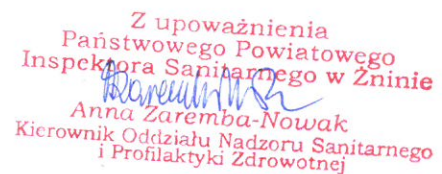 Z upoważnienia
Państwowego Powiatowego
Inspektora Sanitarnego w Żninie
Anna Zaremba-Nowak
Kierownik Oddziału Nadzoru Sanitarnego
i Profilaktyki Zdrowotnej